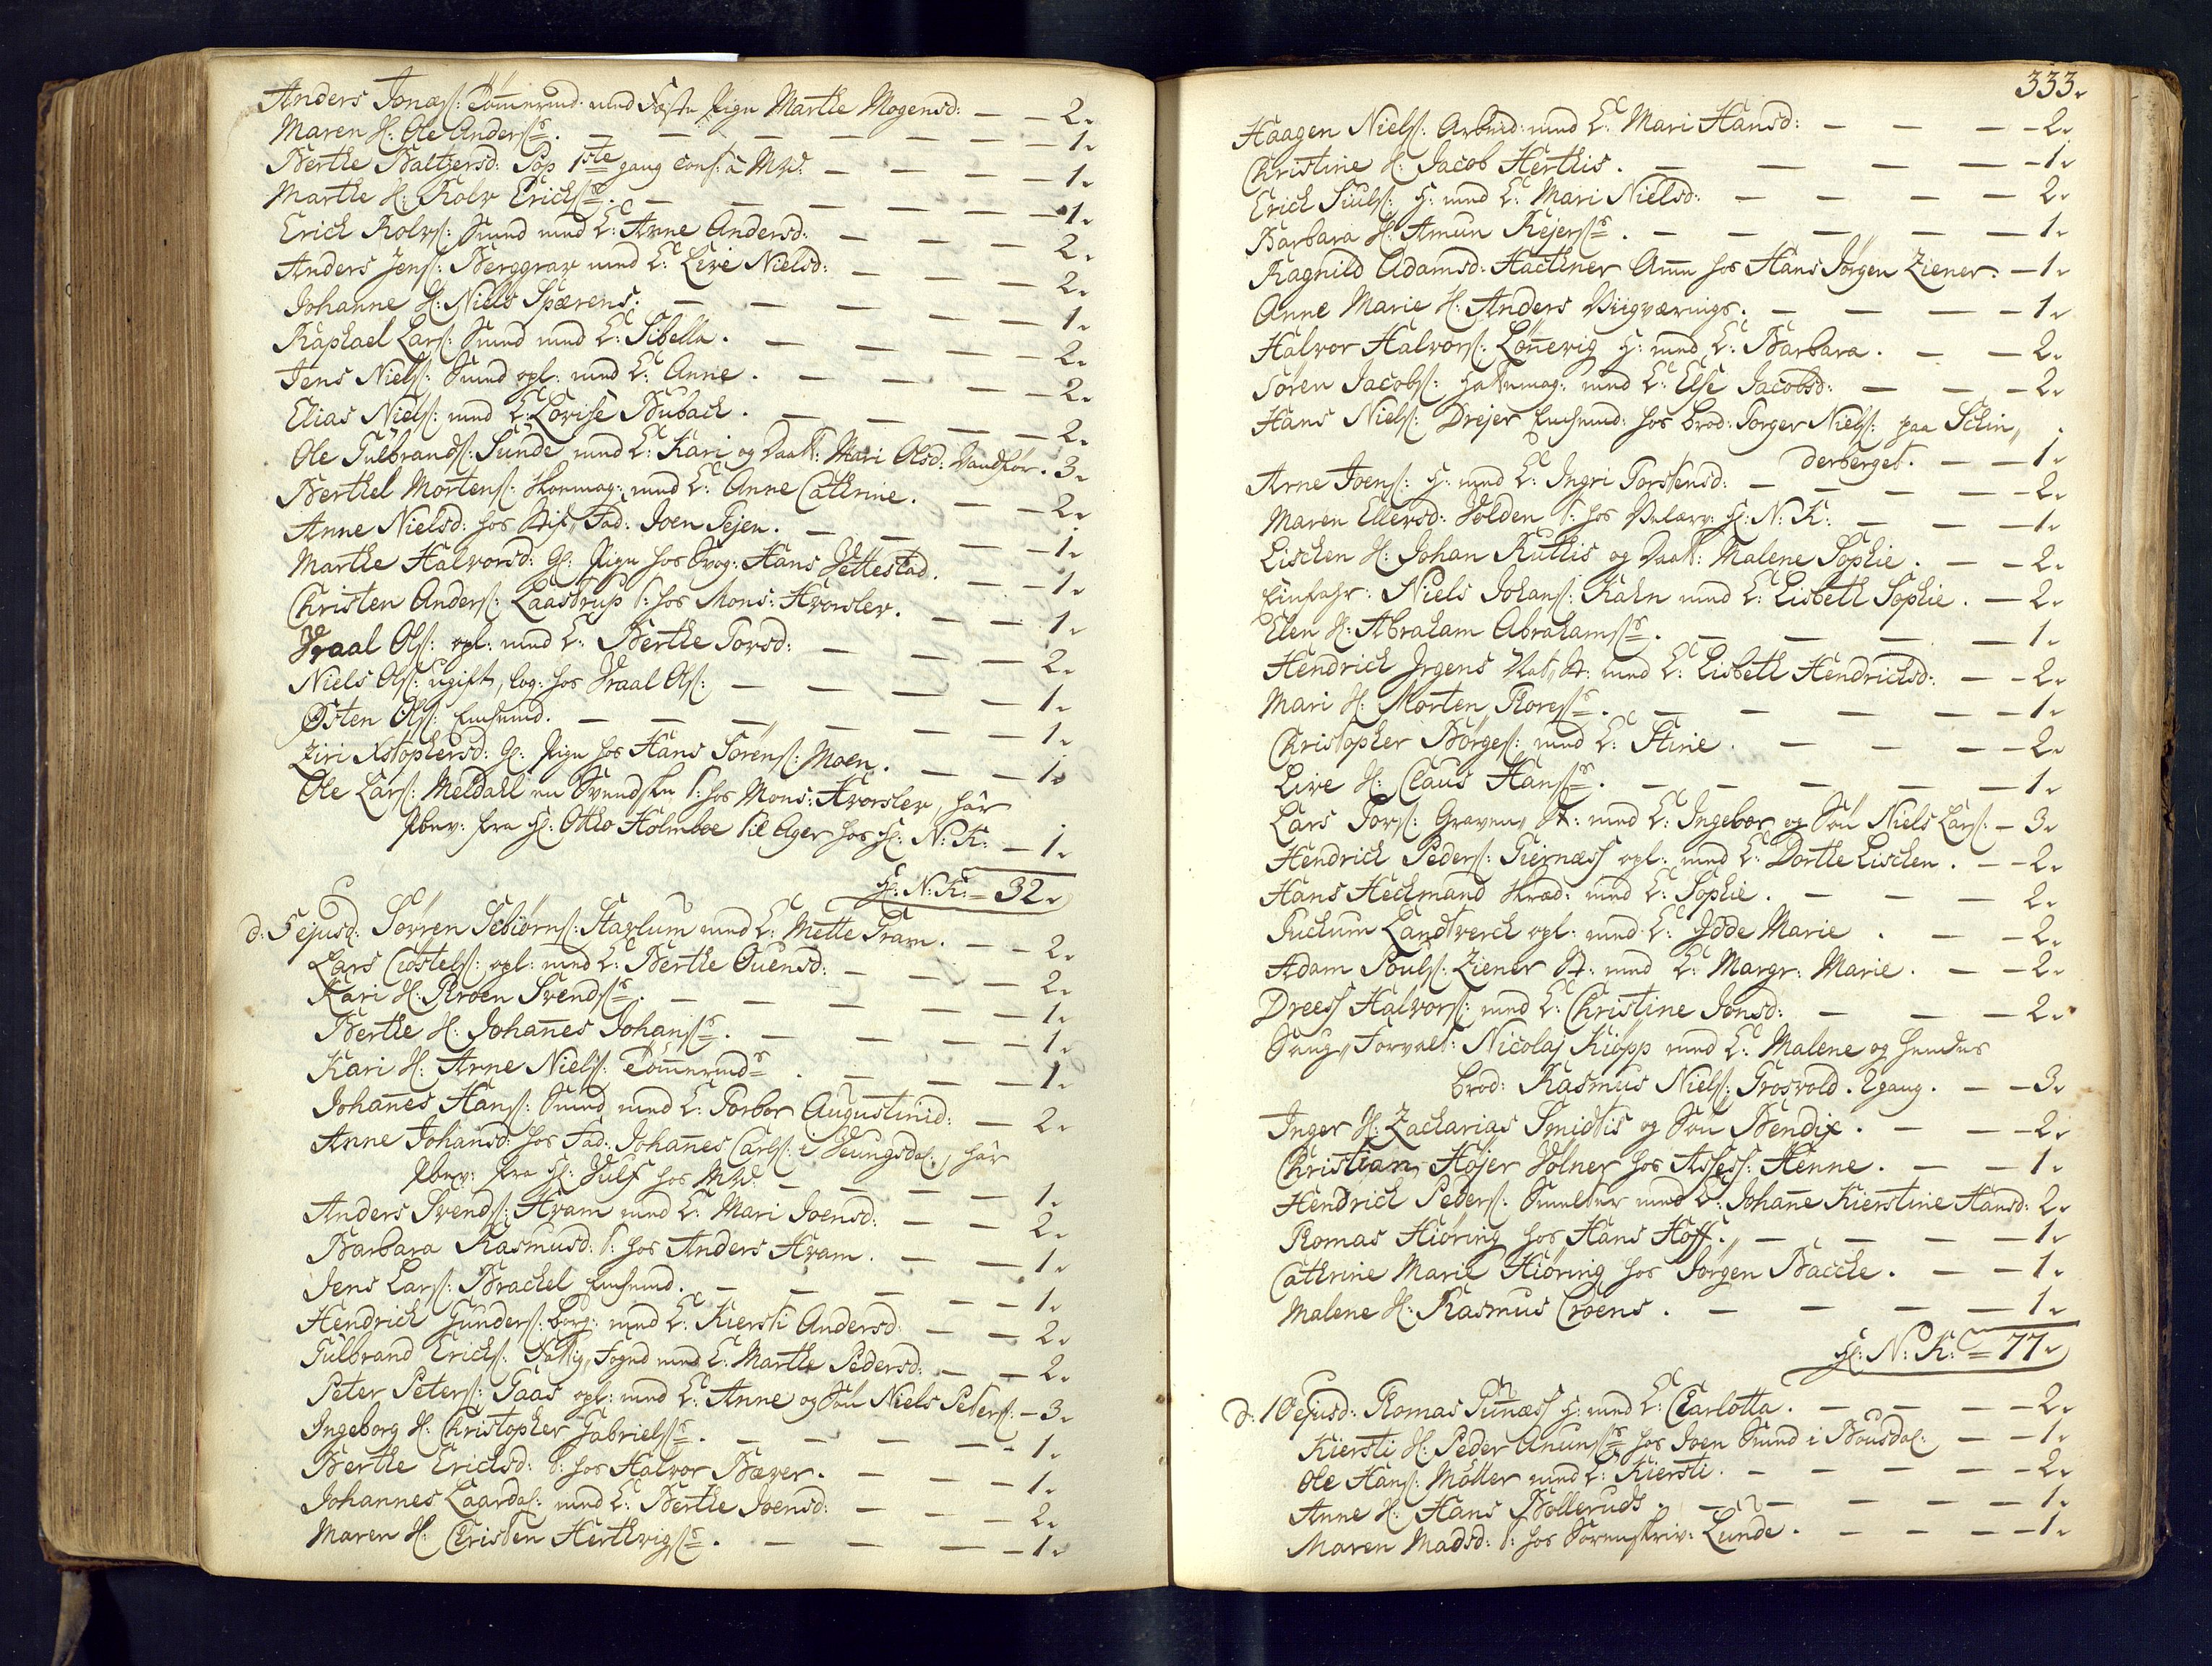 Anders Jonæs: Tömermd: med Fæste Pige Marthe Mogensd: — — 2.
Maren H: Ole Anders:s . — — — — — — 1.
Berthe Baltzersd: Pop 1ste gang conf: a MW: — — — 1.
Marthe H: Rolv Erichs: . — — — — — — 1.
Erich Rolvs: Smed med K: Arne Andersd: — — — 2.
Anders Jens: Berggrav med K: Live Nielsd: — — — 2.
Johanne H: Niels Spærens: — — — — — 1.
Raphael Lars: Smed med K: Sibella . — — — — 2.
Jens Niels: Smed opl: med K: Anne . — — — — 2.
Elias Niels: med K: Lovise Bubach . — — — — 2.
Ole Gulbrands: Sunde med K: Kari og Daat: Mari Olsd: Vandkør . 3.
Berthel Mortens: Skomag: med K: Anne Cathrine . — — 2.
Anne Nielsd: hos Stif Fad: Joen Tejen . — — — 1.
Marthe Halvorsd: G: Pige hos Svog: Hans Jettestad . — — 1.
Christen Anders: Laastrup t: hos Mons: Hvorslev . — — 1.
Vraal Ols: opl: med K: Berthe Torsd: — — — 2.
Niels Ols: ugift, log: hos Vraal Ols: — — — — 1.
Østen Ols: Enkemd. — — — — — 1.
Ziri Xstophersd: G: Pige hos Hans Sörens: Moen . — — 1.
Ole Lars: Meldahl en Svensker t: hos Mons: Hvorslev, har
Abev: fra H: Otto Holmboe til Ager hos H: N: K: — 1.
H: N: K: = 32.
d: 5 ejusd: Sörren Sebiörns: Harlum med K: Mette Tram . — — 2.
Lars Cröstels: opl: med K: Berthe Ouensd: — — — 2.
Kari H: Proen Svends: . — — — — — 1.
Berthe H: Johanes Johans: . — — — — 1.
Kari H: Arne Niels: Tömermds . — — — — 1.
Johanes Hans: Smed med K: Torbor Augustinid: — 2.
Anne Johansd: hos Fad: Johanes Carls: i Jeungsdal:, har
Abev: fra H: Wulf hos MW. — — — — 1.
Anders Svends: Hvam med K: Mari Joensd: — — 2.
Barbara Rasmusd: t: hos Anders Hvam . — — 1.
Jens Lars: Brackel Enkemd. — — — — 1.
Hendrich Gunders: borg: med K: Kiersti Andersd: — — 2.
Gulbrand Erichs: Fattig Fogd med K: Marthe Pedersd: — — 2.
Peter Peters: Gaas opl: med K: Anne og Sön Niels Peters: — 3.
Ingeborg H: Christopher Gabriels: . — — — — 1.
Berthe Erichsd: t: hos Halvor Bæver . — — — 1.
Johannes Laardal: med K: Berthe Joensd: — — — 2.
Maren H: Christen Herthvigs: . — — — — 1.
333.
Haagen Niels: Arbeid: med K: Mari Hansd: — — — 2.
Christine H: Jacob Herthis . — — — — — 1.
Erich Siuls: H: med K: Mari Nielsd: — — — — 2.
Barbara H: Amun Rejers: . — — — — — 1.
Ragnild Adamsd: Hachner Ame hos Hans Jörgen Ziener: — 1.
Anne Marie H: Anders Viigværings . — — — — 1.
Halvor Halvors: Lönevig H: med K: Barbara . — — 2.
Sören Jacobs: Hattemag: med K: Else Jacobsd: — — — 2.
Hans Niels: Drejer Enkemd: hos brod: Torger Niels: paa Schin,,
derberget . — — 1.
Arne Joens: H: med K: Ingri Torstensd: — — — — 2.
Maren Ellersd: Wolden t: hos Vælærv: H: N: K: — — — 1.
Lischen H: Johan Ruthis og Daat: Malene Sophie . — — 2.
Einfahr: Niels Johans: Kahn med K: Lisbeth Sophie . — 2.
Elen H: Abraham Abrahams: . — — — — 1.
Hendrich Jrgens Rat, St: med K: Lisbeth Hendrichsd: — — 2.
Mari H: Morten Rores: . — — — — — 1.
Christopher Börges: med K: Stine . — — — — 2.
Live H: Claus Hans: . — — — — — 1.
Lars Tors: Graven, St: med K: Ingebor og Sön Niels Lars: — 3.
Hendrich Peders: Giernæss opl: med K: Dorthe Lischen . — — 2.
Hans Heckmand Skræd: med K: Sophie . — — — 2.
Tuchum Landtverck opl: med K: Jdde Marie . — — 2.
Adam Pouls: Ziener St: med K: Margr: Marie . — — 2.
Drees Halvors: med K: Christine Jonsd: — — — 2.
Saug,, Forvalt: Nicolaj Kiöpp med K: Malene og hendes
brod: Rasmus Niels: Grosvold . 2gang . — — 3.
Inger H: Zacharias Smidtis og Sön Bendix . — — — 2.
Christian Höjer Wölner hos Assess: Henne . — — 1.
Hendrich Peders: Smelter med K: Johane Kierstine Hansd: 2.
Romas Hiöring hos Hans Hoff . — — — — 1.
Cathrine Marie Hiöring hos Jörgen Bacche . — — 1.
Malene H: Rasmus Croens . — — — — 1.
H: N: K: = 77.
d: 10 ejusd: Romas Tunæss H: med K: Charlotta . — — — 2.
Kiersti H: Peder Amuns: hos Joen Smed i Bousdal: — — 1.
Ole Hans: Möller med K: Kiersti . — — — — 2.
Anne H: Hans Bolleruds . — — — — 1.
Maren Madsd: t: hos Sorenskriv: Lunde . — — — — 1.